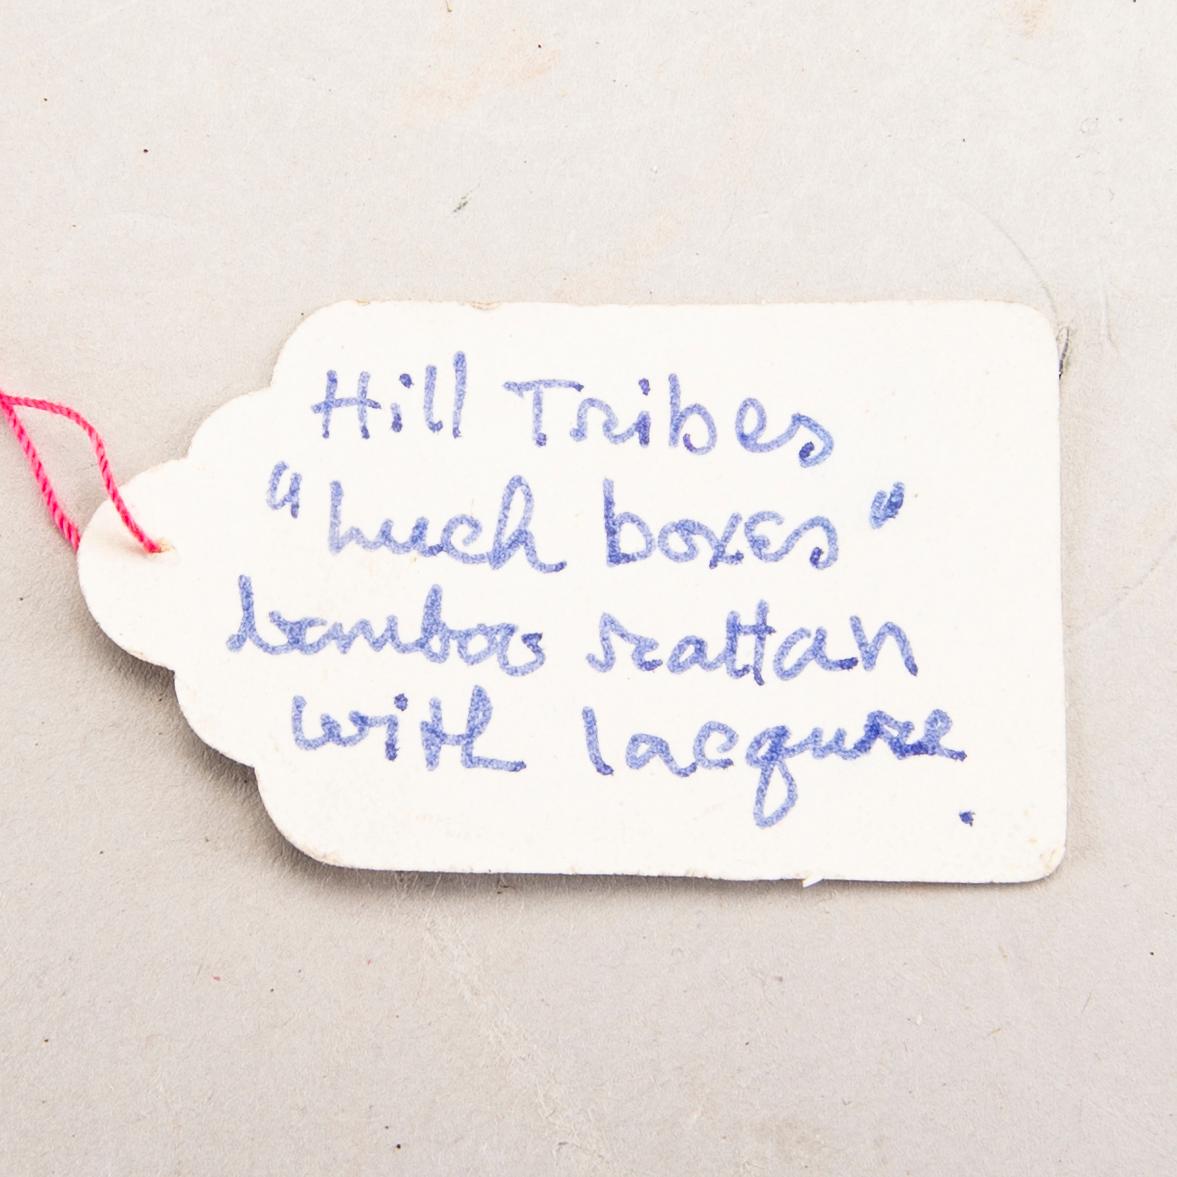 Hill Tribes
"Luch boxes"
bamboo rattan
with lacqure.